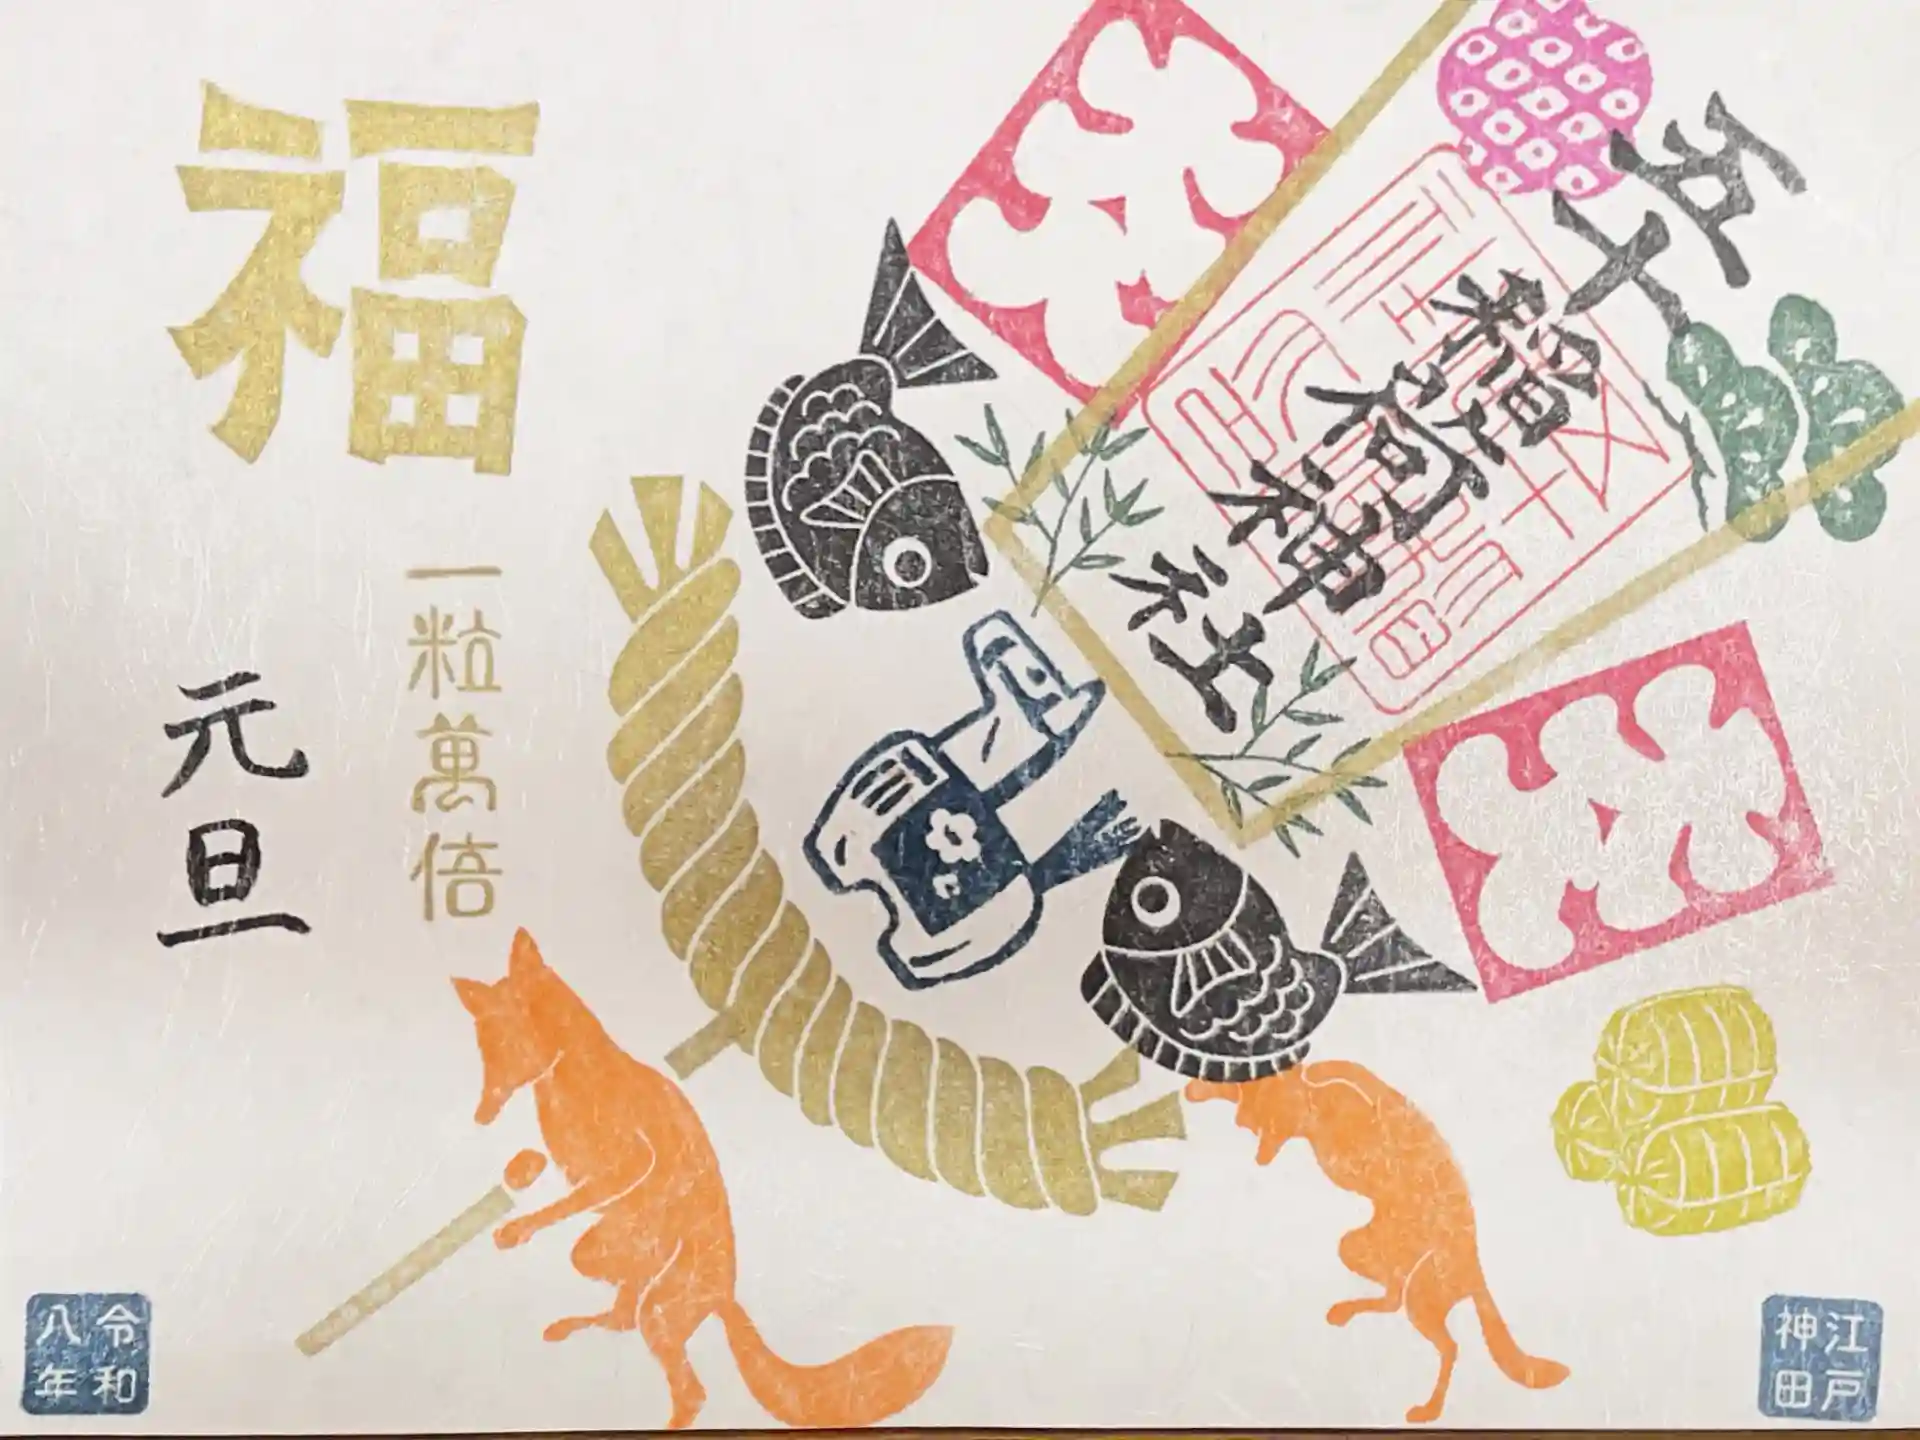 五十
稲荷神社
福
一粒萬倍
元旦
江戸
神田
令和
八年